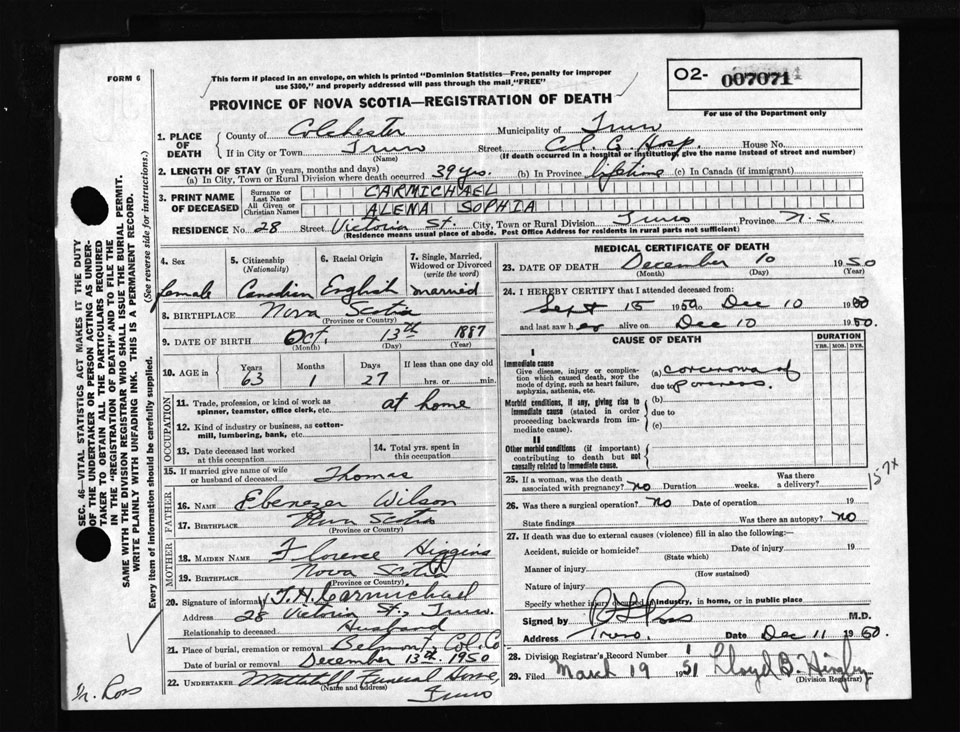 FORM 6
This form if placed in an envelope, on which is printed "Dominion Statistics—Free, penalty for improper
use $300," and properly addressed will pass through the mail, "FREE"
PROVINCE OF NOVA SCOTIA—REGISTRATION OF DEATH
02- 007071
For use of the Department only
1. PLACE OF DEATH
County of Colchester Municipality of Truro
If in City or Town Truro Street Col. G. Hosp. House No.
(Name) (If death occurred in a hospital or institution, give the name instead of street and number)
2. LENGTH OF STAY (in years, months and days)
(a) In City, Town or Rural Division where death occurred 39 yrs. (b) In Province lifetime (c) In Canada (if immigrant)
3. PRINT NAME OF DECEASED
Surname or Last Name CARMICHAEL
All Given or Christian Names ALENA SOPHIA
RESIDENCE No. 28 Street Victoria St. City, Town or Rural Division Truro Province N.S.
(Residence means usual place of abode. Post Office Address for residents in rural parts not sufficient)
4. Sex
female
5. Citizenship (Nationality)
Canadian
6. Racial Origin
English
7. Single, Married, Widowed or Divorced (write the word)
married
8. BIRTHPLACE Nova Scotia
(Province or Country)
9. DATE OF BIRTH Oct. 13th 1887
(Month) (Day) (Year)
10. AGE in Years Months Days If less than one day old
63 1 27 hrs. or min.
OCCUPATION
11. Trade, profession, or kind of work as
spinner, teamster, office clerk, etc. at home
12. Kind of industry or business, as cotten-
mill, lumbering, bank, etc.
13. Date deceased last worked at this occupation
14. Total yrs. spent in this occupation
15. If married give name of wife
or husband of deceased Thomas
FATHER
16. NAME Ebenezer Wilson
17. BIRTHPLACE Nova Scotia
(Province or Country)
MOTHER
18. MAIDEN NAME Florence Higgins
19. BIRTHPLACE Nova Scotia
(Province or Country)
20. Signature of informant T. H. Carmichael
Address 28 Victoria St., Truro.
Relationship to deceased Husband
21. Place of burial, cremation or removal Belmont, Col. Co
Date of burial or removal December 13th. 1950
22. UNDERTAKER Mattatall Funeral Home,
(Name and address) Truro
MEDICAL CERTIFICATE OF DEATH
23. DATE OF DEATH December 10 1950
(Month) (Day) (Year)
24. I HEREBY CERTIFY that I attended deceased from:
Sept 15 1950 to Dec 10 1950
and last saw her alive on Dec 10 1950.
CAUSE OF DEATH
DURATION
YRS. MOS. DYS.
I
Immediate cause
Give disease, injury or complica-
tion which caused death, not the
mode of dying, such as heart failure,
asphyxia, asthenia, etc.
(a)
due to
Morbid conditions, if any, giving rise to
immediate cause (stated in order
proceeding backwards from im-
mediate cause).
(b)
due to
(c)
II
Other morbid conditions (if important)
contributing to death but not
causally related to immediate cause.
25. If a woman, was the death
associated with pregnancy? no Duration weeks. Was there a delivery?
157x
26. Was there a surgical operation? No Date of operation 19
State findings Was there an autopsy? No
27. If death was due to external causes (violence) fill in also the following:—
Accident, suicide or homicide? Date of injury 19
(State which)
Manner of injury
(How sustained)
Nature of injury
Specify whether injury occurred in industry, in home, or in public place
Signed by Ross M.D.
Address Truro. Date Dec 11 1950.
28. Division Registrar's Record Number
29. Filed March 19 1951 Lloyd B.
(Division Registrar)
SEC. 46—VITAL STATISTICS ACT MAKES IT THE DUTY
OF THE UNDERTAKER OR PERSON ACTING AS UNDER-
TAKER TO OBTAIN ALL THE PARTICULARS REQUIRED
IN THE "REGISTRATION OF DEATH" AND TO FILE THE
SAME WITH THE DIVISION REGISTRAR WHO SHALL ISSUE THE BURIAL PERMIT.
WRITE PLAINLY WITH UNFADING INK. THIS IS A PERMANENT RECORD.
Every item of information should be carefully supplied. (See reverse side for instructions.)
Ross